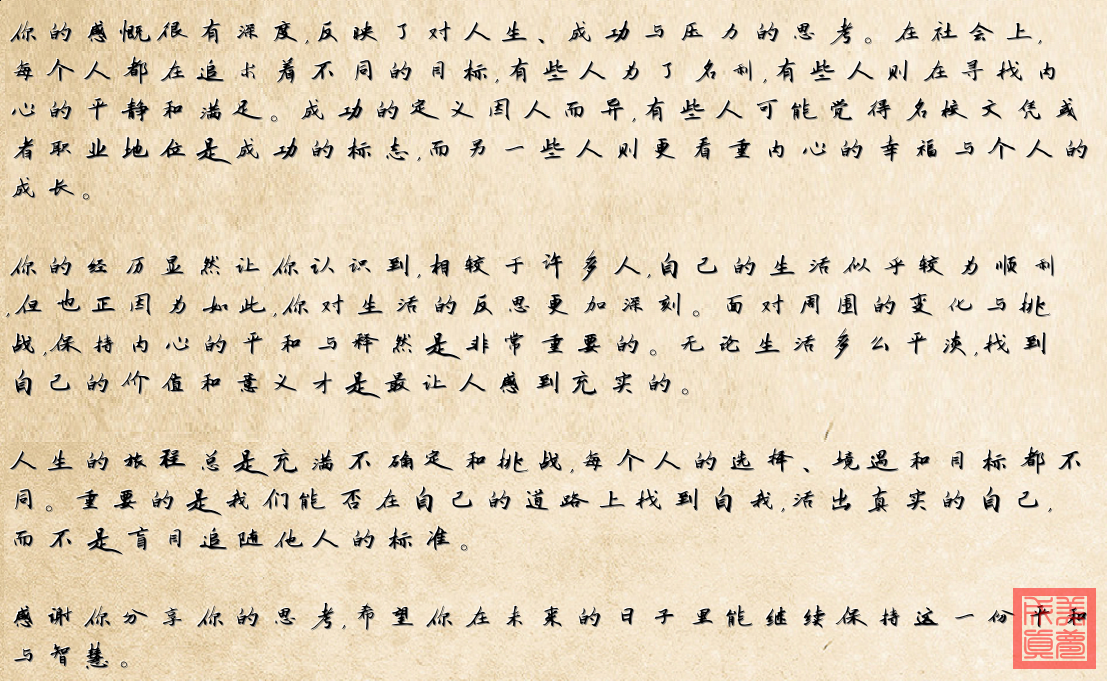 你的感慨很有深度,反映了对人生、成功与压力的思考。在社会上,
每个人都在追求着不同的目标,有些人为了名利,有些人则在寻找内
心的平静和满足。成功的定义因人而异,有些人可能觉得名校文凭或
者职业地位是成功的标志,而另一些人则更看重内心的幸福与个人的
成长。
你的经历显然让你认识到,相较于许多人,自己的生活似乎较为顺利
,但也正因为如此,你对生活的反思更加深刻。面对周围的变化与挑
战,保持内心的平和与释然是非常重要的。无论生活多么平淡,找到
自己的价值和意义才是最让人感到充实的。
人生的旅程总是充满不确定和挑战,每个人的选择、境遇和目标都不
同。重要的是我们能否在自己的道路上找到自我,活出真实的自己,
而不是盲目追随他人的标准。
感谢你分享你的思考,希望你在未来的日子里能继续保持这一份平和
与智慧。
美梦成真